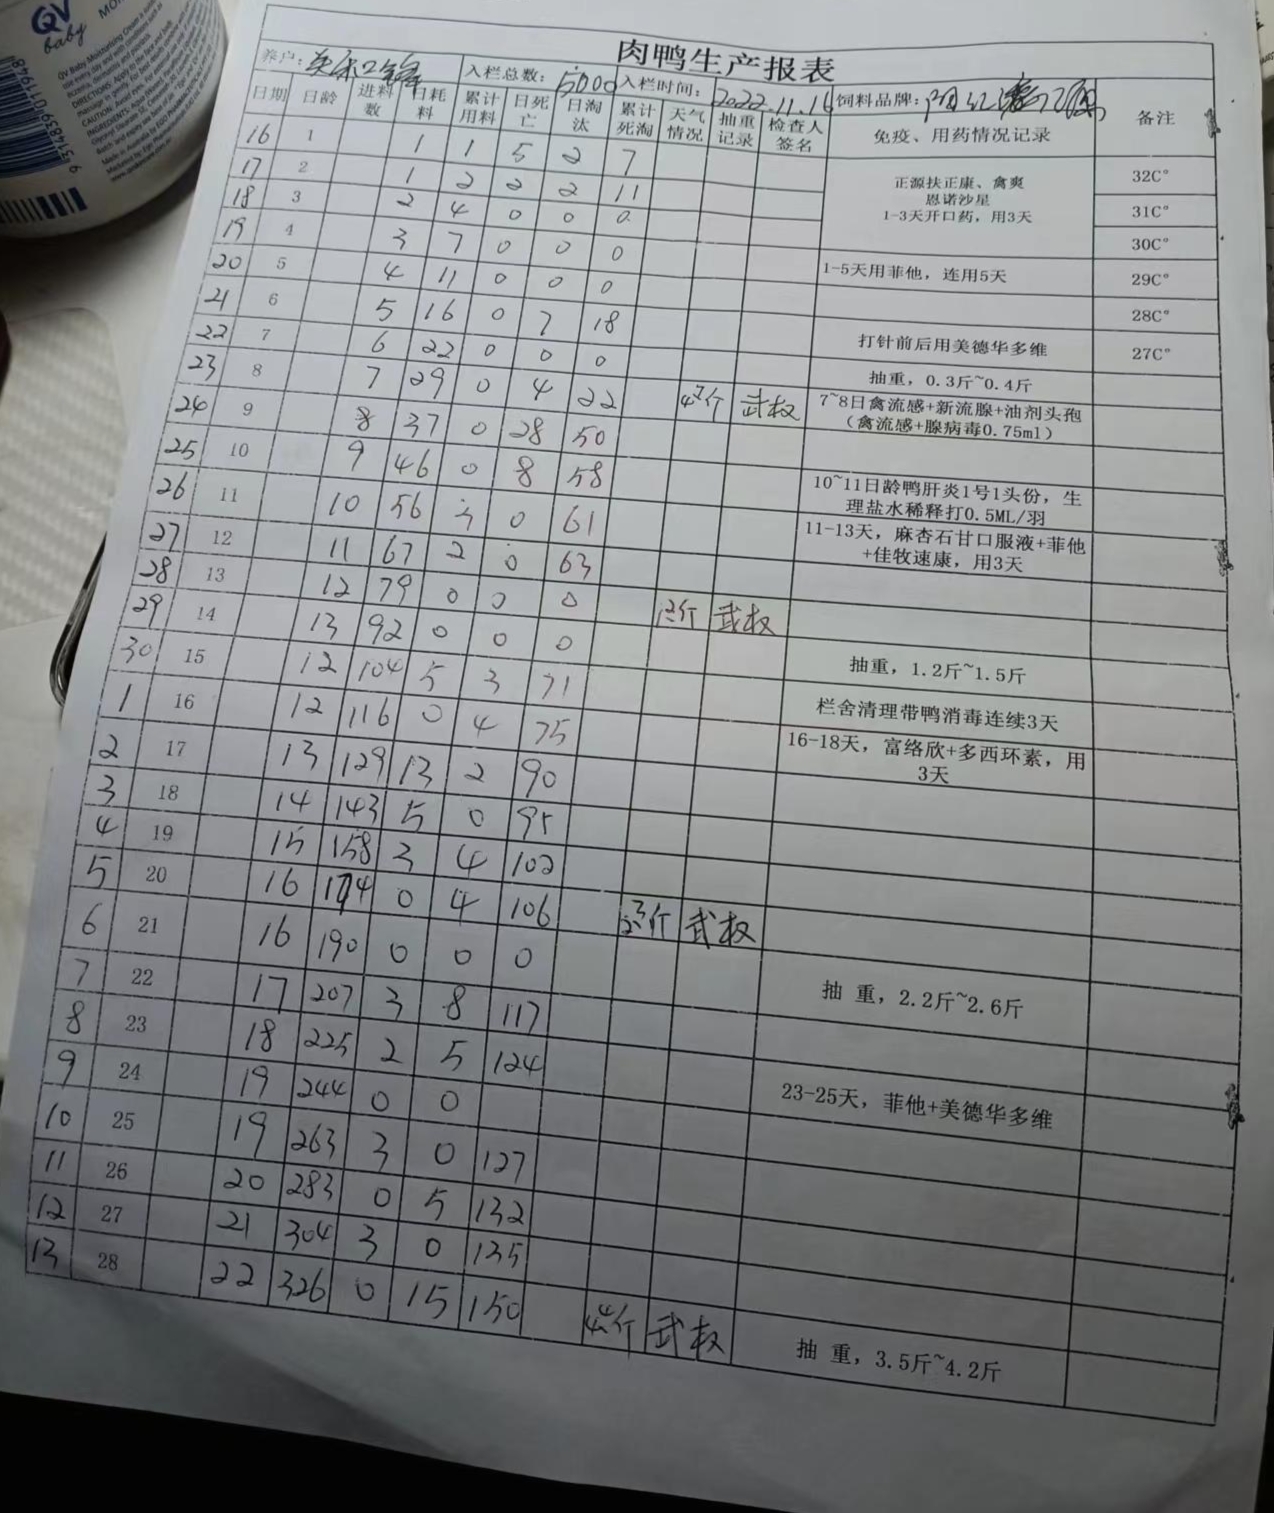 QV
baby
9 315839 011948
肉鸭生产报表
养户: 入栏总数: 5000 入栏时间: 2022.11.16 饲料品牌:
日期 日龄 进料数 日耗料 累计用料 日死亡 日淘汰 累计死淘 天气情况 抽重记录 检查人签名 免疫、用药情况记录 备注
16 1 1 1 5 2 7
17 2 1 2 2 2 11 正源扶正康、禽爽 32C°
恩诺沙星
18 3 2 4 0 0 0 1-3天开口药，用3天 31C°
19 4 3 7 0 0 0 30C°
20 5 4 11 0 0 0 1-5天用菲他，连用5天 29C°
21 6 5 16 0 7 18 28C°
22 7 6 22 0 0 0 打针前后用美德华多维 27C°
23 8 7 29 0 4 22 斤 武权 抽重，0.3斤~0.4斤
24 9 8 37 0 28 50 7~8日禽流感+新流腺+油剂头孢
（禽流感+腺病毒0.75ml）
25 10 9 46 0 8 58
26 11 10 56 3 0 61 10~11日龄鸭肝炎1号1头份，生
理盐水稀释打0.5ML/羽
27 12 11 67 2 0 63 11-13天，麻杏石甘口服液+菲他
+佳牧速康，用3天
28 13 12 79 0 0 0
29 14 13 92 0 0 0 斤 武权
30 15 12 104 5 3 71 抽重，1.2斤~1.5斤
1 16 12 116 0 4 75 栏舍清理带鸭消毒连续3天
2 17 13 129 13 2 90 16-18天，富络欣+多西环素，用
3天
3 18 14 143 5 0 95
4 19 15 158 3 4 102
5 20 16 174 0 4 106
6 21 16 190 0 0 0 斤 武权
7 22 17 207 3 8 117 抽 重，2.2斤~2.6斤
8 23 18 225 2 5 124
9 24 19 244 0 0 23-25天，菲他+美德华多维
10 25 19 263 3 0 127
11 26 20 283 0 5 132
12 27 21 304 3 0 135
13 28 22 326 0 15 150 斤 武权 抽 重，3.5斤~4.2斤